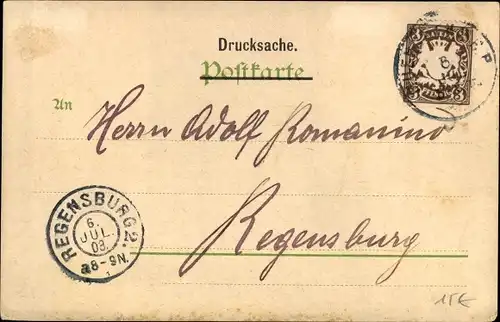 Drucksache.
Postkarte
An
Herrn Adolf Romanino
Regensburg
REGENSBURG 2.
6.
JUL.
03.
a8-9N.
15€